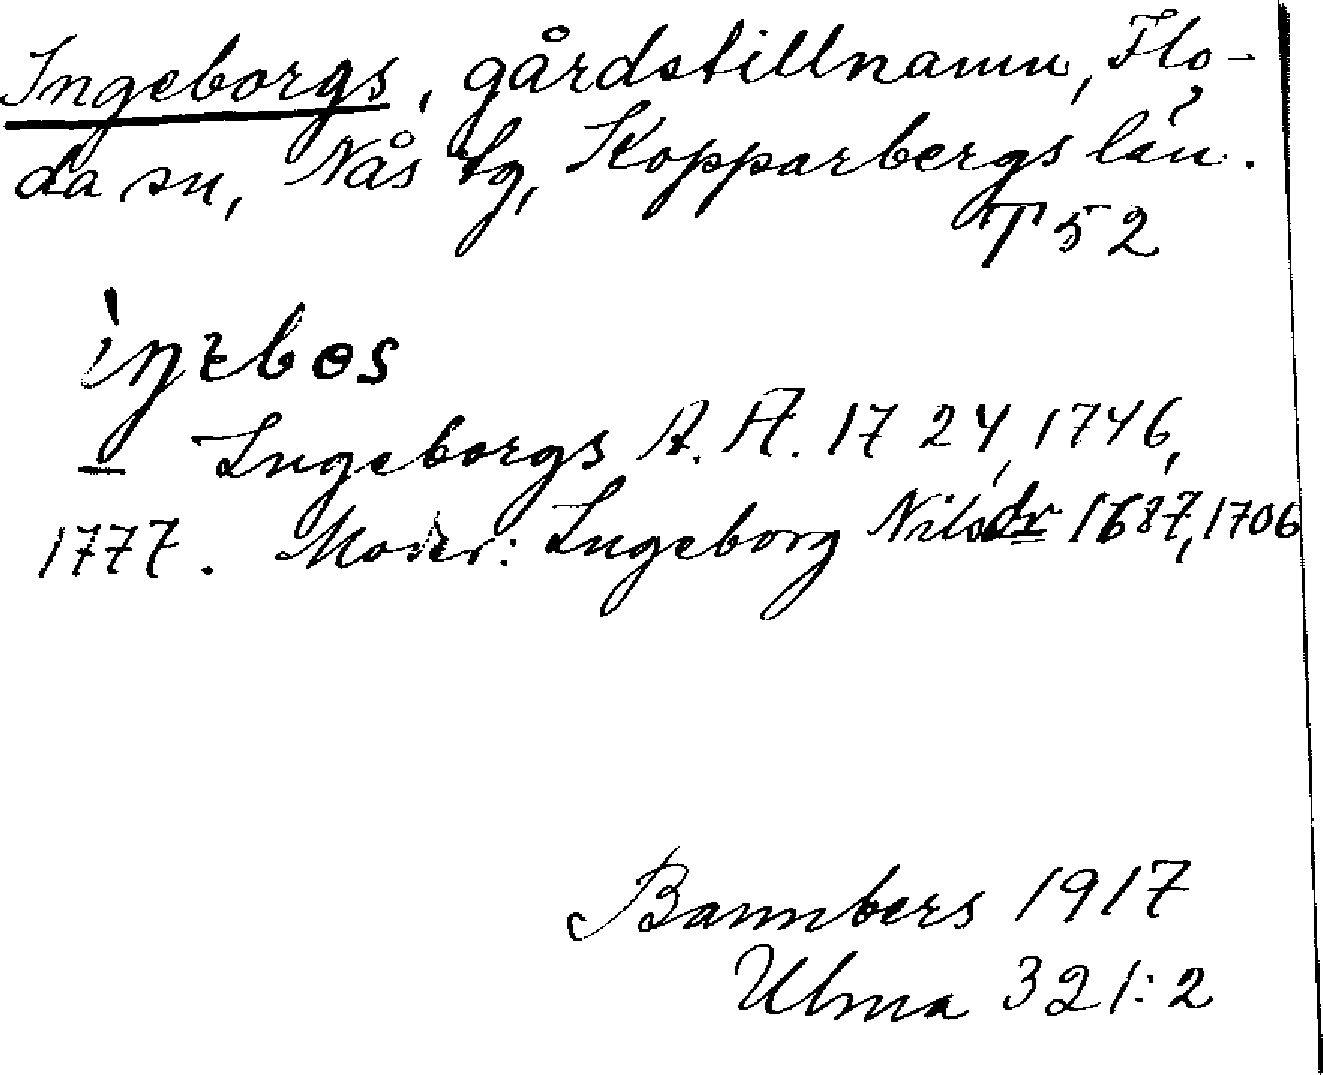 Ingeborgs, gårdstillnamn, Flo-
da sn, Nås tg, Kopparbergs län.
T 52
ìŋebɵs
— Ingeborgs A. Ä. 1724, 1746,
1777. Moder: Ingeborg Nilsdr 1687, 1706
Bannbers 1917
Ulma 321:2